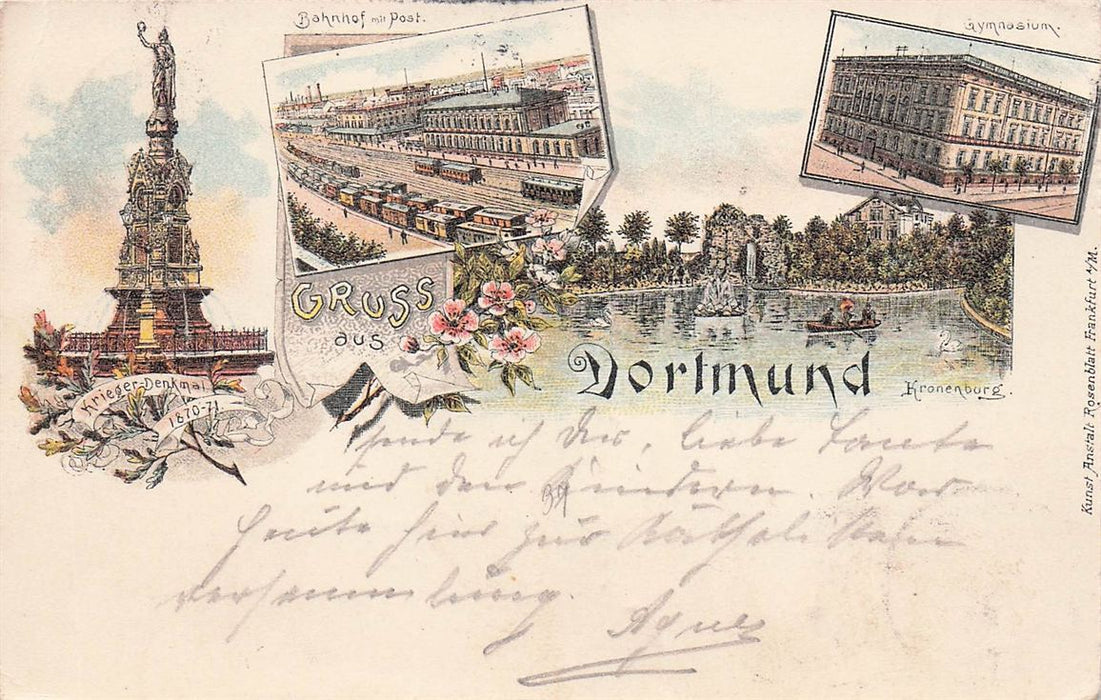 Bahnhof mit Post.
Gymnasium.
GRUSS
aus
Dortmund
Kronenburg.
Krieger-Denkmal
1870-71.
Kunst Anstalt Rosenblatt Frankfurt a/M.
sende ich Dir, liebe Tante
und den Kindern. War
heute hier zur Katholiken
versammlung.
Agnes